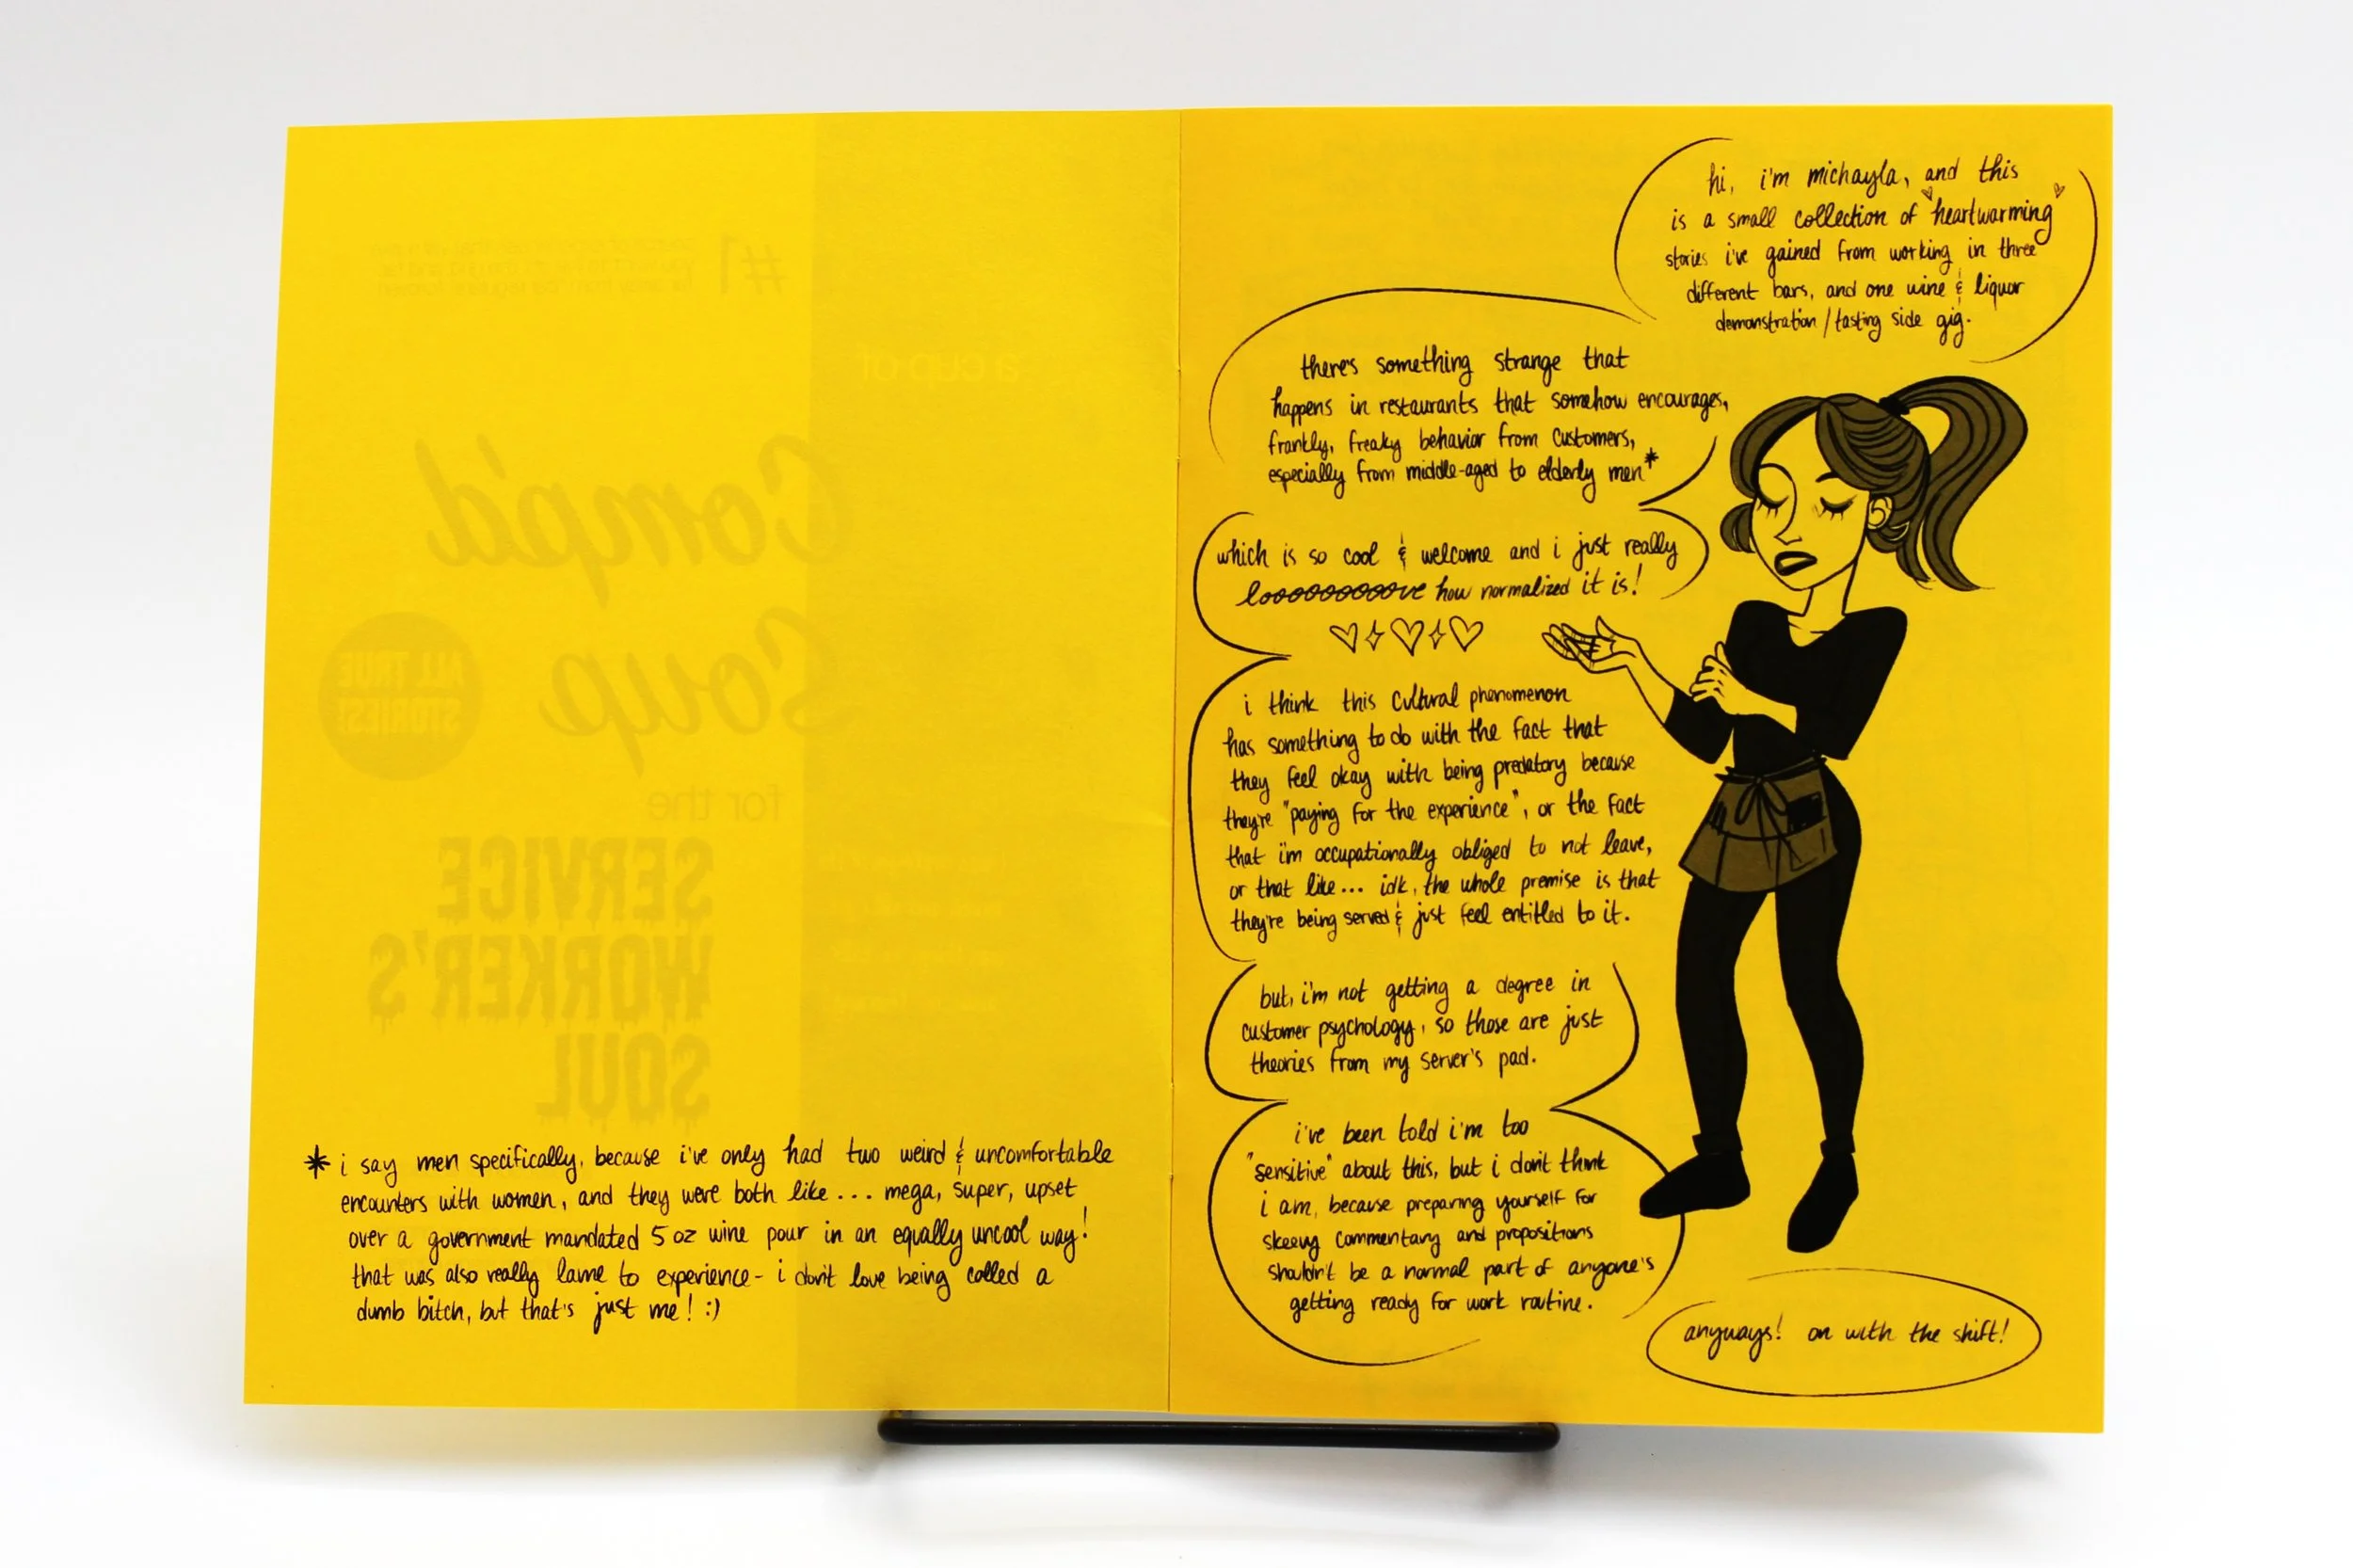 #1
a cup of
Comp'd
Soup
ALL TRUE
STORIES!
for the
SERVICE
WORKER'S
SOUL
* i say men specifically, because i've only had two weird & uncomfortable
encounters with women, and they were both like... mega, super, upset
over a government mandated 5 oz wine pour in an equally uncool way!
that was also really lame to experience- i don't love being called a
dumb bitch, but that's just me! :)
hi, i'm michayla, and this
is a small collection of "heartwarming"
stories i've gained from working in three
different bars, and one wine & liquor
demonstration/tasting side gig.
there's something strange that
happens in restaurants that somehow encourages,
frankly, freaky behavior from customers,
especially from middle-aged to elderly men*
which is so cool & welcome and i just really
looooooooove how normalized it is!
i think this cultural phenomenon
has something to do with the fact that
they feel okay with being predatory because
they're "paying for the experience", or the fact
that i'm occupationally obliged to not leave,
or that like... idk, the whole premise is that
they're being served & just feel entitled to it.
but, i'm not getting a degree in
customer psychology, so those are just
theories from my server's pad.
i've been told i'm too
"sensitive" about this, but i don't think
i am, because preparing yourself for
skeevy commentary and propositions
shouldn't be a normal part of anyone's
getting ready for work routine.
anyways! on with the shift!